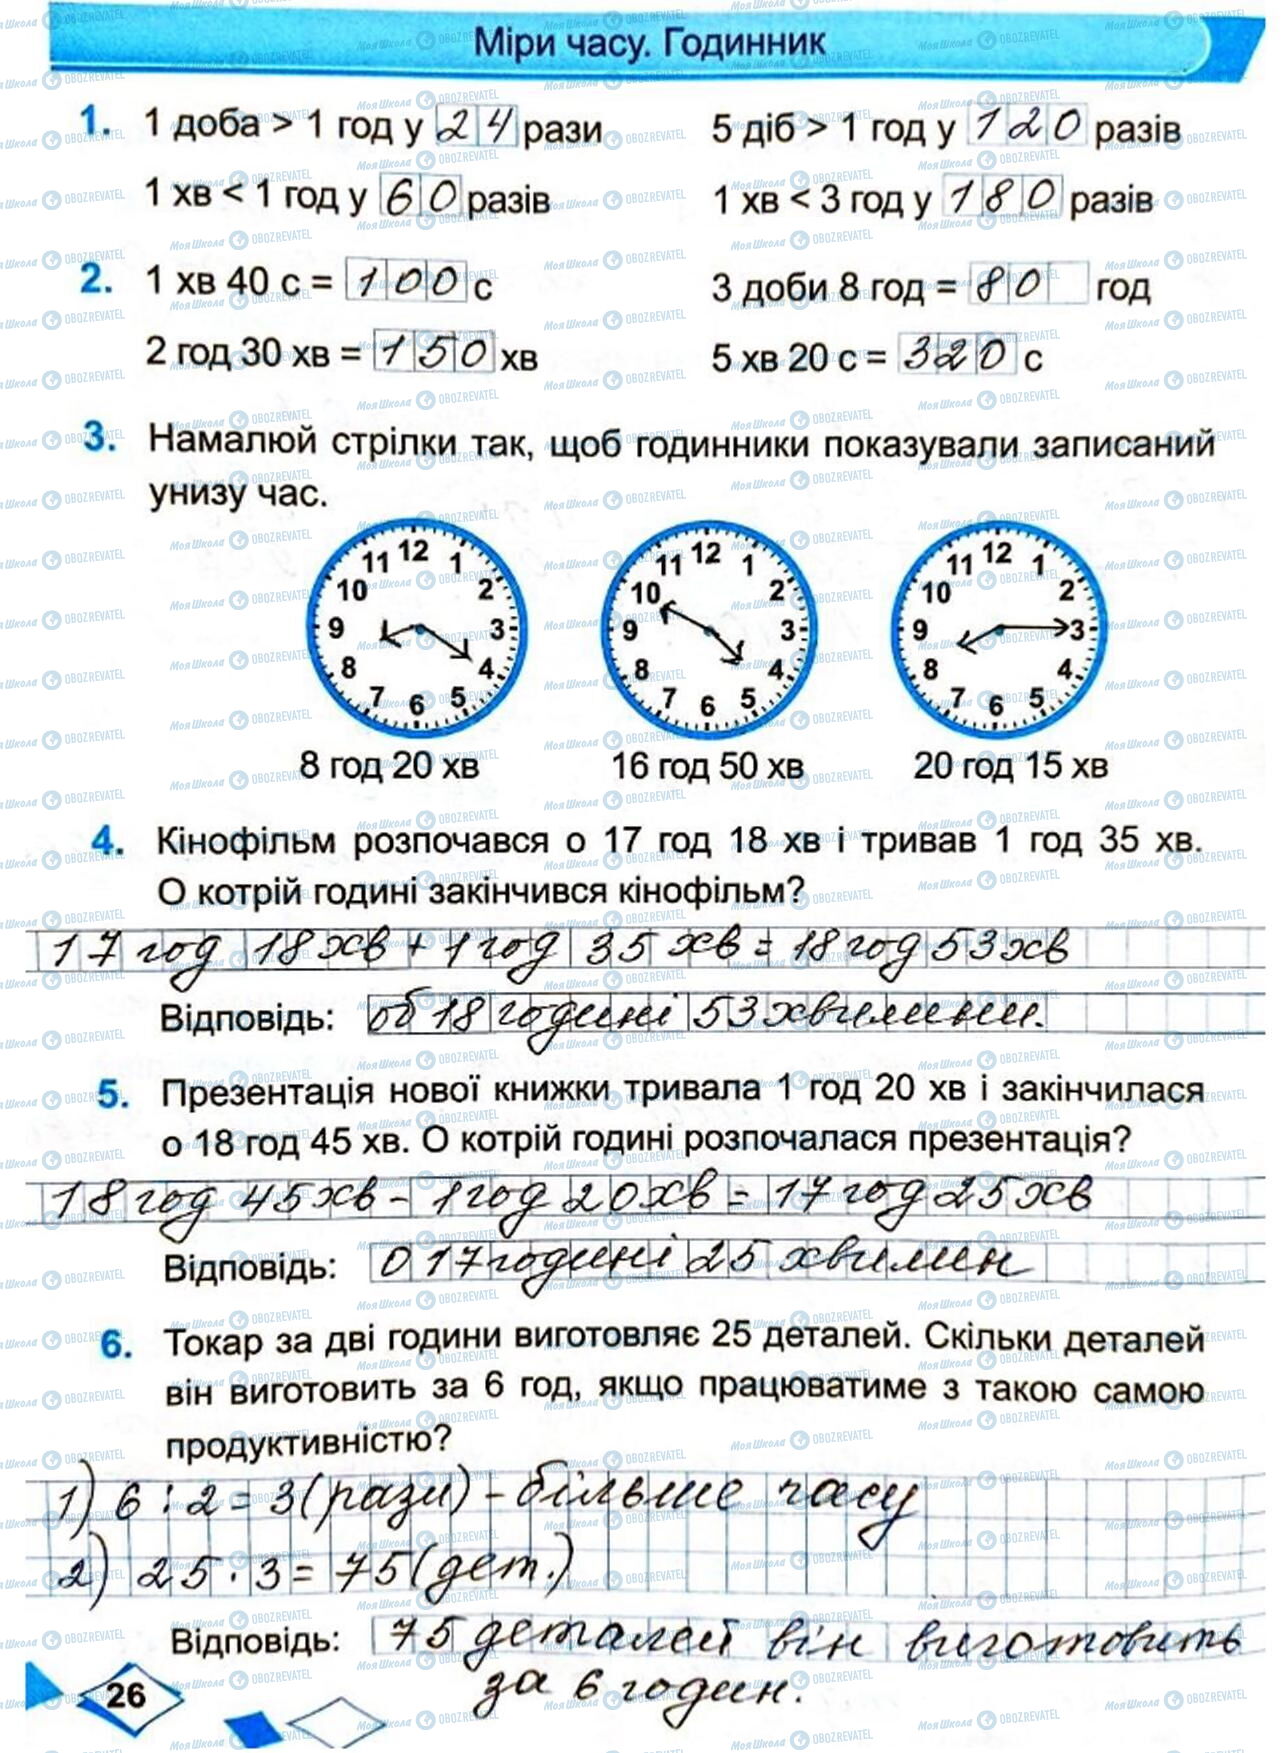 Міри часу. Годинник
1. 1 доба > 1 год у 24 рази 5 діб > 1 год у 120 разів
1 хв < 1 год у 60 разів 1 хв < 3 год у 180 разів
2. 1 хв 40 с = 100 с 3 доби 8 год = 80 год
2 год 30 хв = 150 хв 5 хв 20 с = 320 с
3. Намалюй стрілки так, щоб годинники показували записаний
унизу час.
12 1 2 3 4 5 6 7 8 9 10 11
12 1 2 3 4 5 6 7 8 9 10 11
12 1 2 3 4 5 6 7 8 9 10 11
8 год 20 хв 16 год 50 хв 20 год 15 хв
4. Кінофільм розпочався о 17 год 18 хв і тривав 1 год 35 хв.
О котрій годині закінчився кінофільм?
17 год 18 хв + 1 год 35 хв = 18 год 53 хв
Відповідь: об 18 годині 53 хвилини.
5. Презентація нової книжки тривала 1 год 20 хв і закінчилася
о 18 год 45 хв. О котрій годині розпочалася презентація?
18 год 45 хв - 1 год 20 хв = 17 год 25 хв
Відповідь: о 17 годині 25 хвилин
6. Токар за дві години виготовляє 25 деталей. Скільки деталей
він виготовить за 6 год, якщо працюватиме з такою самою
продуктивністю?
1) 6 : 2 = 3 (рази) - більше часу
2) 25 · 3 = 75 (дет.)
Відповідь: 75 деталей він виготовить
за 6 годин.
26